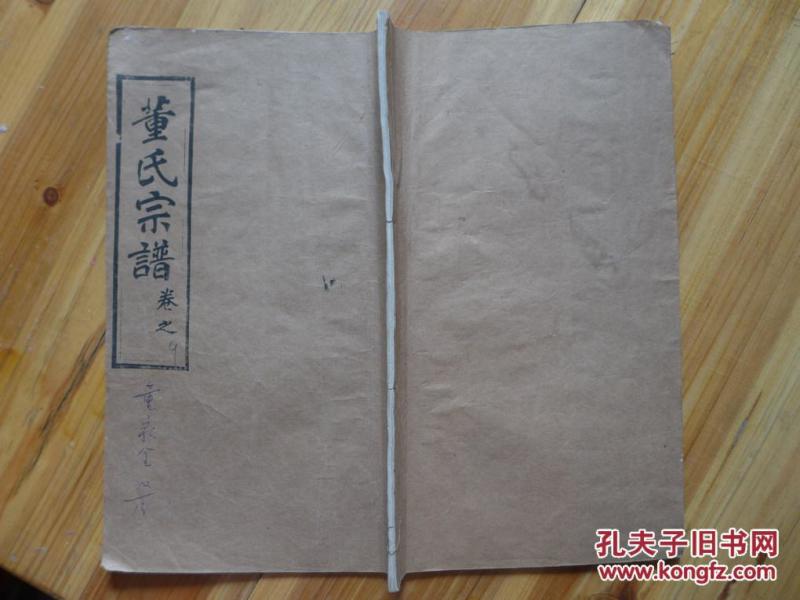 董氏宗譜
卷之9
孔夫子旧书网
www.kongfz.com